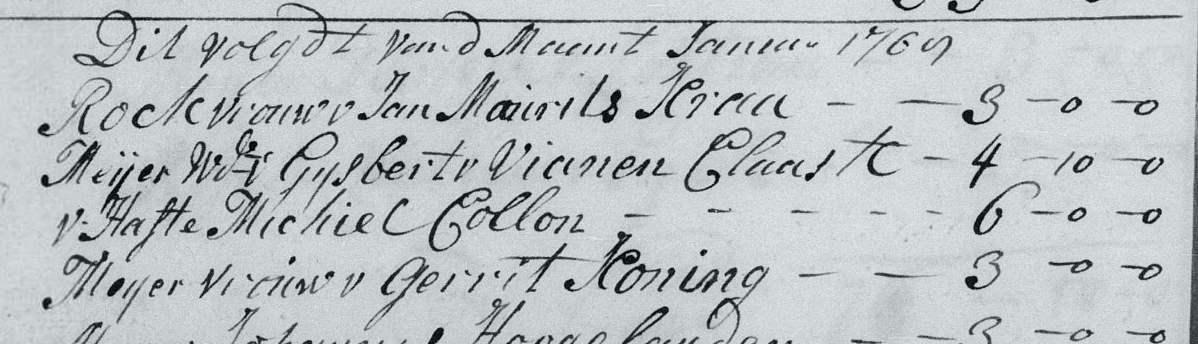 Dit volgdt vand Maant Januu 1769
Rock vrouw v Jan Mairits Krau - - 3 - 0 - 0
Meijer Wdr Gysbert v Vianen Claas - 4 - 10 - 0
v. Hafte Michiel Collon - - - - - 6 - 0 - 0
Meyer vrouw v Gerrit Koning - - 3 - 0 - 0
Hoogelanden - - 3 - 0 - 0